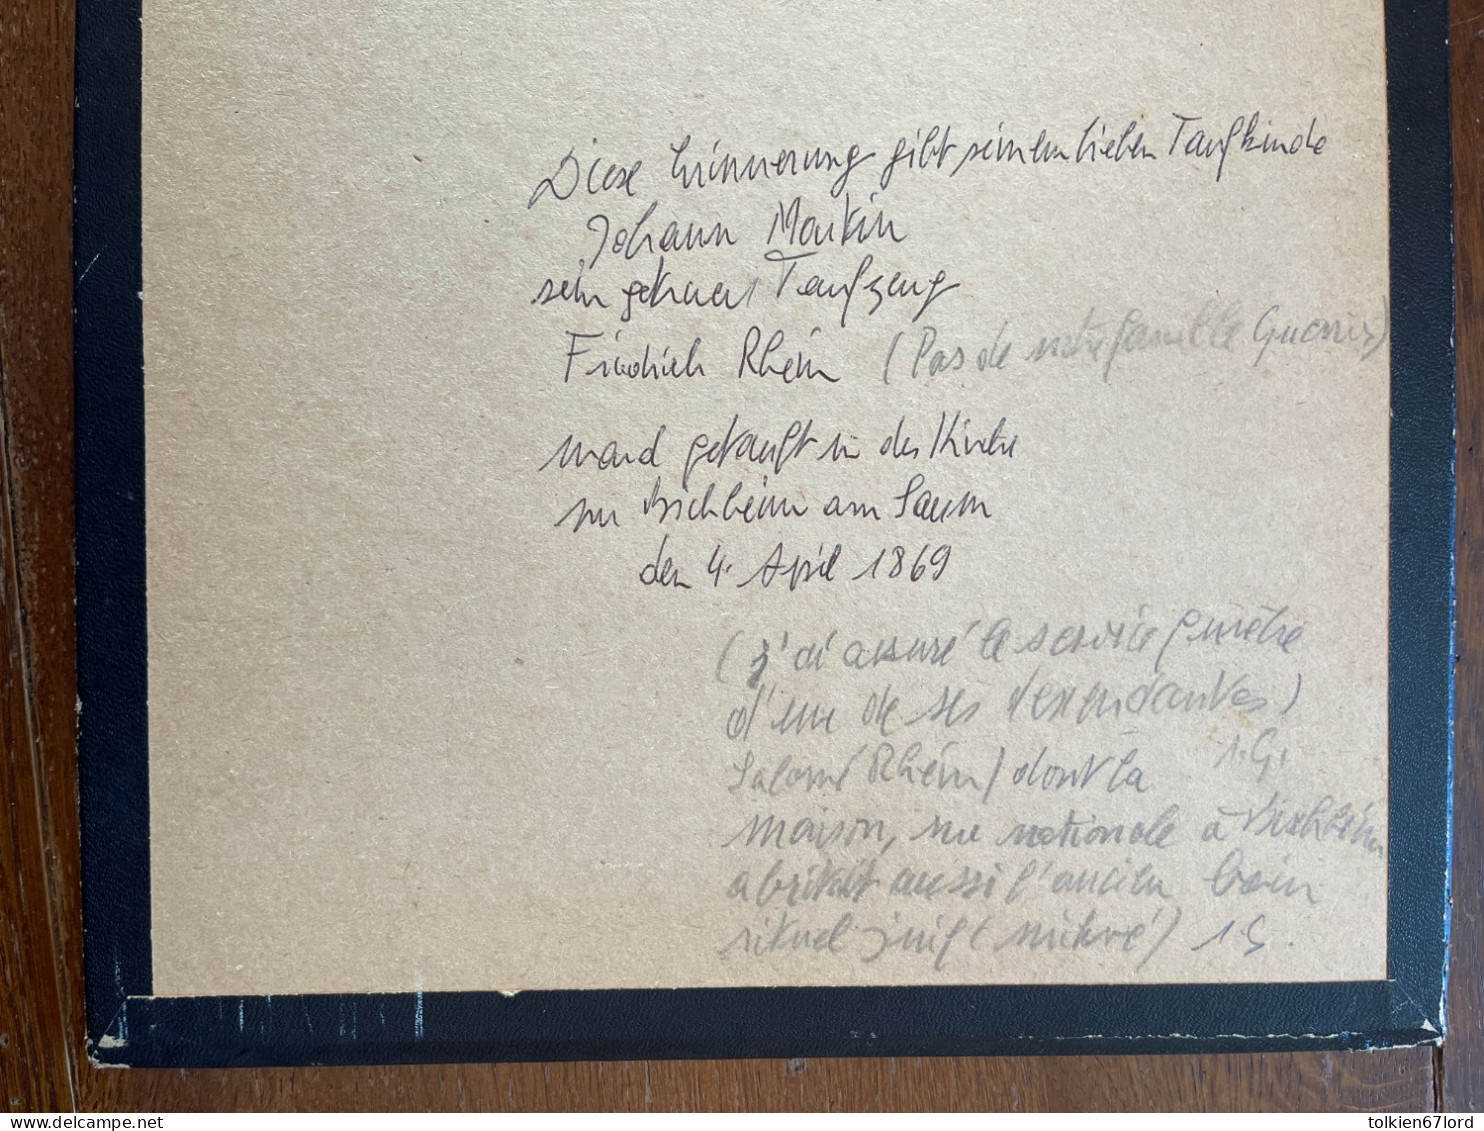 Diese Erinnerung gibt seinem lieben Taufkinde
Johann Martin
sein getreuer Taufzeug
Friedrich Rhein (Pas de notre famille Guerrier)
ward getauft in der Kirche
zu Bischheim am Saum
den 4. April 1869
(j'ai assuré le service funèbre
d'une de ses descendantes)
Salomé Rhein) dont la J.G.
maison, rue nationale à Bischheim
abritait aussi l'ancien bain
rituel juif (mikvé) J.G.
delcampe.net
tolkien67lord